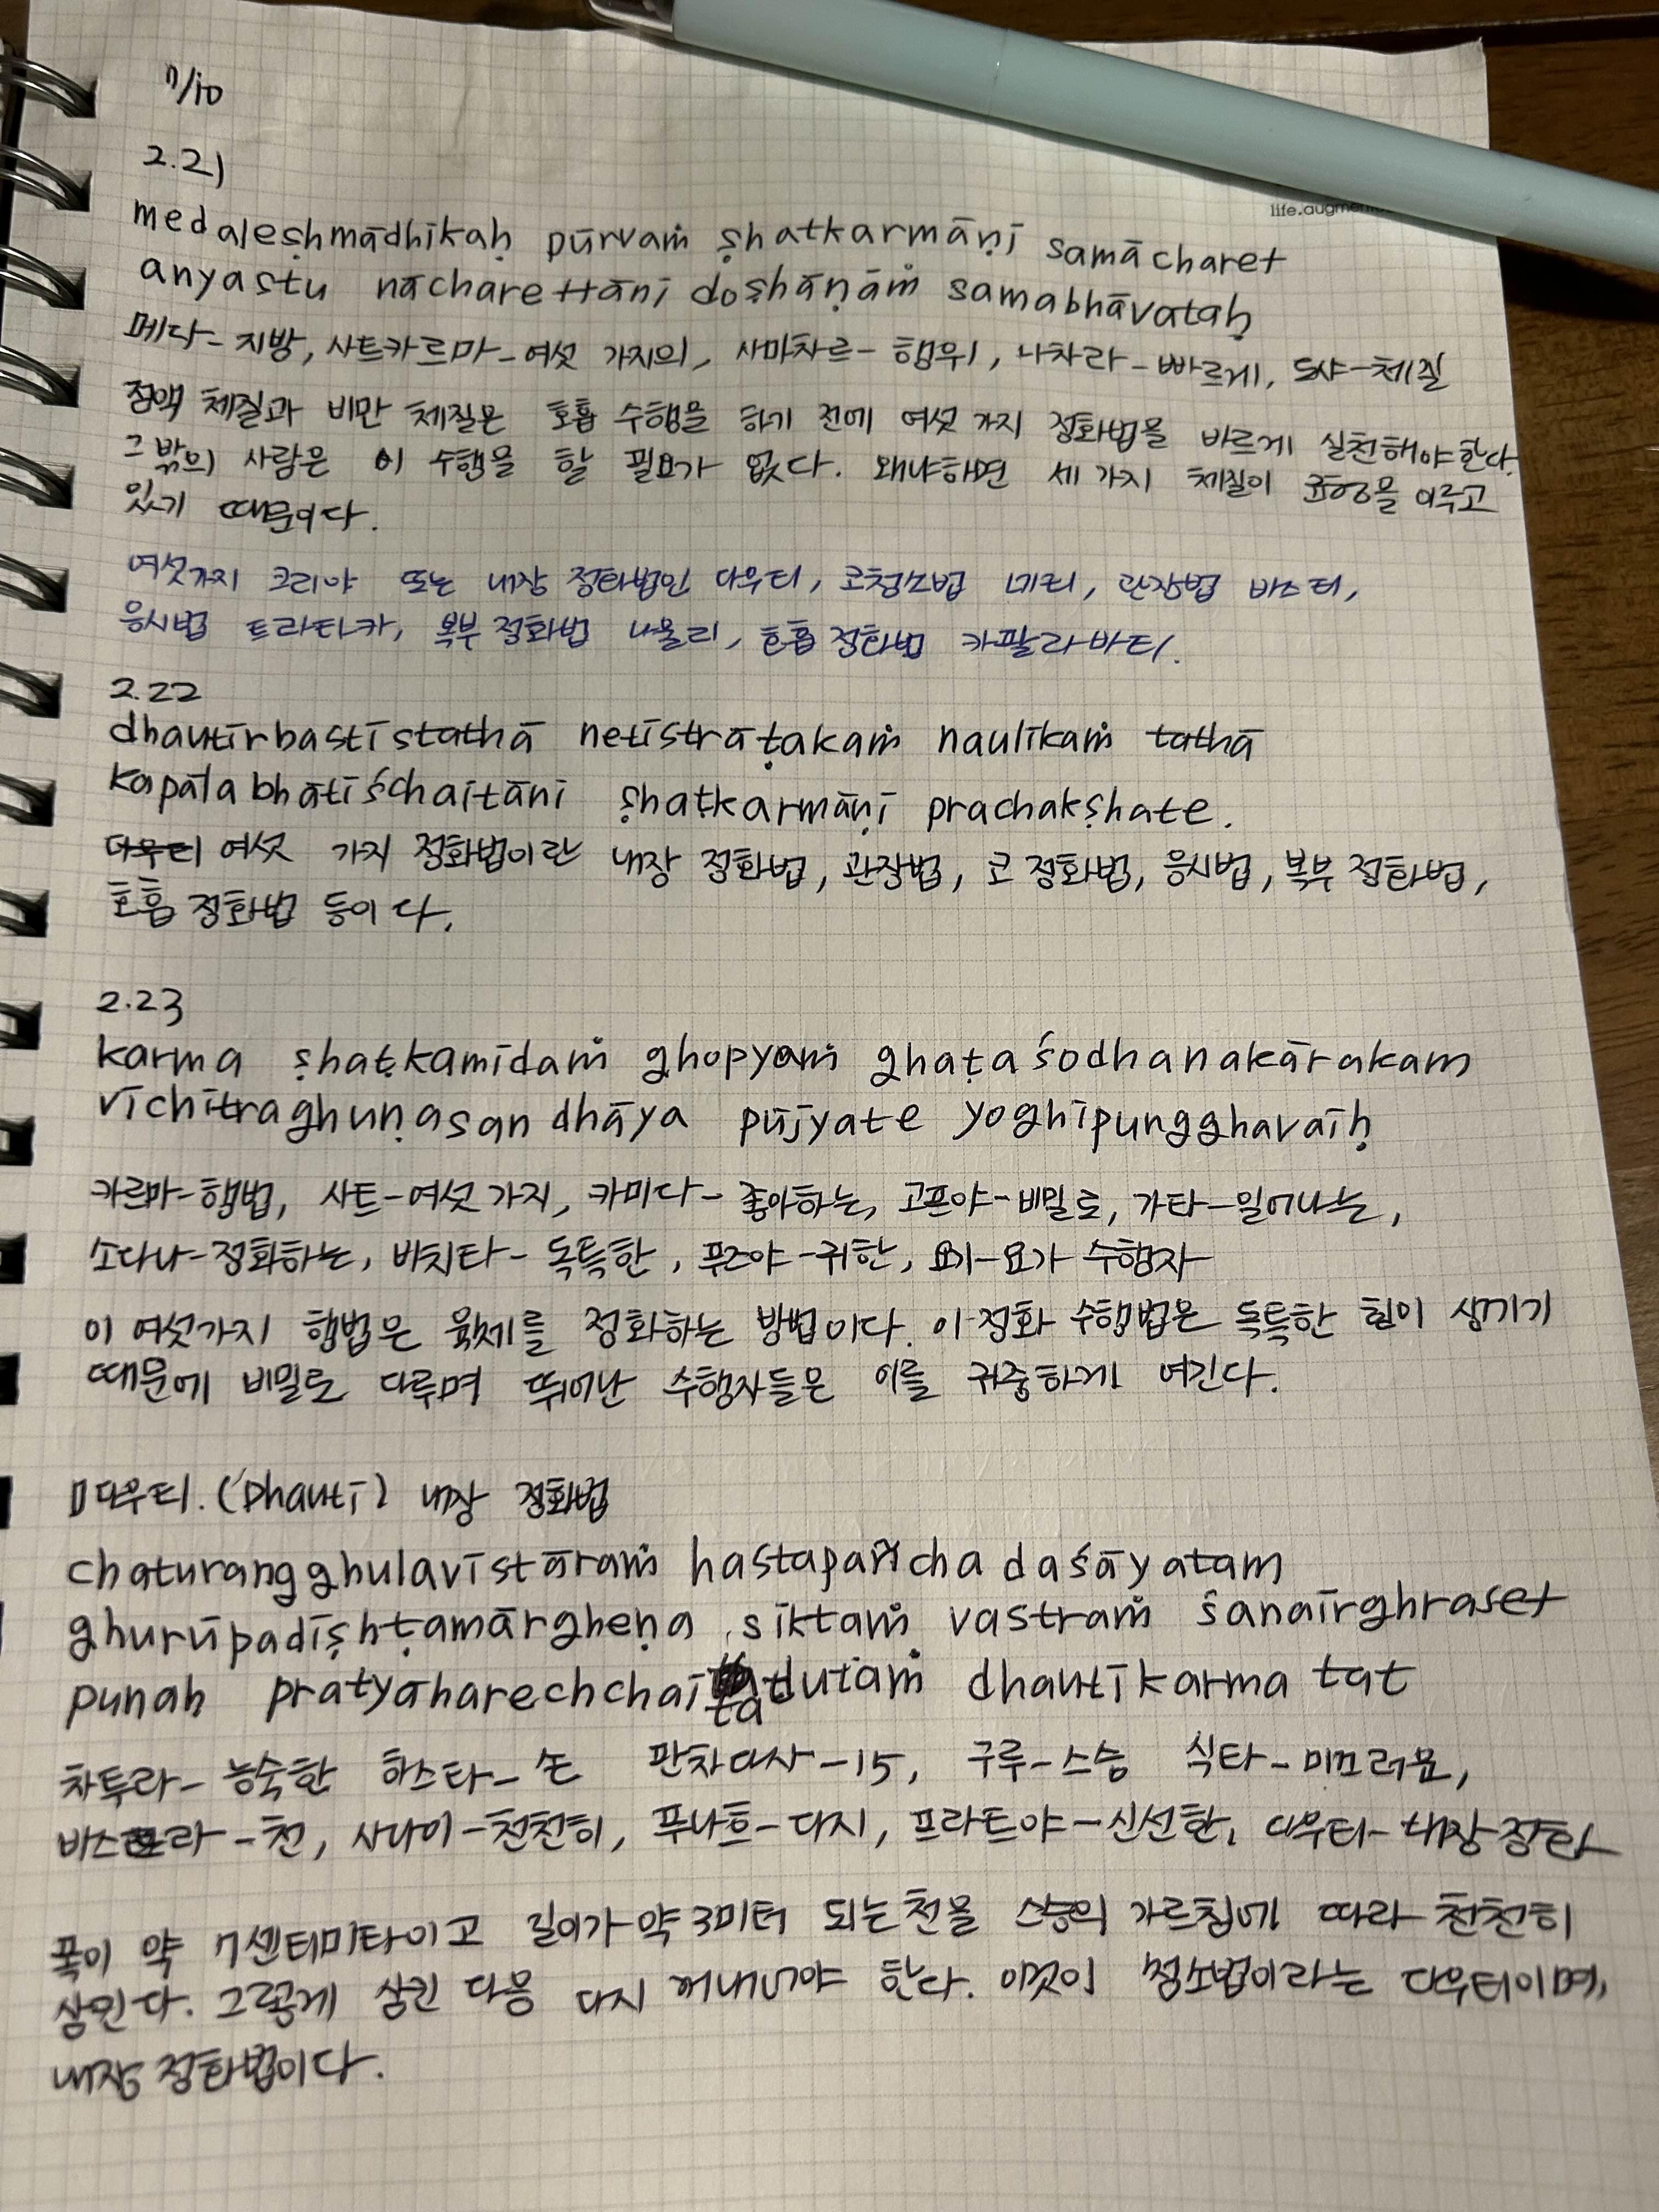 7/10
2.21
medaleṣhmādhikaḥ pūrvaṁ ṣhatkarmāṇi samācharet
life.augme
anyastu nācharettāni doṣhāṇāṁ samabhāvataḥ
메다-지방, 사트카르마-여섯 가지의, 사마차르-행위, 나차라-빠르게, 도샤-체질
점액 체질과 비만 체질은 호흡 수행을 하기 전에 여섯 가지 정화법을 바르게 실천해야한다.
그 밖의 사람은 이 수행을 할 필요가 없다. 왜냐하면 세 가지 체질이 균형을 이루고
있기 때문이다.
여섯가지 크리야 또는 내장 정화법인 다우티, 코청소법 네티, 관장법 바스티,
응시법 트라타카, 복부 정화법 나울리, 호흡 정화법 카팔라바티.
2.22
dhautirbastistathā netistrāṭakaṁ naulikaṁ tathā
kapālabhātiśchaitāni ṣhaṭkarmāṇi prachakṣhate.
여섯 가지 정화법이란 내장 정화법, 관장법, 코 정화법, 응시법, 복부 정화법,
호흡 정화법 등이다.
2.23
karma ṣhaṭkamidaṁ ghopyaṁ ghaṭaśodhanakārakam
vichitraghuṇasandhāya pūjyate yoghipungghavaiḥ
카르마-행법, 사트-여섯 가지, 카미다-좋아하는, 고프야-비밀로, 가타-일어나는,
소다나-정화하는, 바치타-독특한, 푸즈야-귀한, 요기-요가 수행자
이 여섯가지 행법은 육체를 정화하는 방법이다. 이 정화 수행법은 독특한 힘이 생기기
때문에 비밀로 다루며 뛰어난 수행자들은 이를 귀중하게 여긴다.
다우티. (Dhauti) 내장 정화법
chaturangghulavistāraṁ hastapañcha daśāyatam
ghurūpadiṣhṭamārgheṇa siktaṁ vastraṁ śanairghraset
punaḥ pratyāharechchaitadutaṁ dhautikarma tat
차투라-능숙한 하스타-손 판차다사-15, 구루-스승 식타-미끄러운,
바스트라-천, 사나이-천천히, 푸나흐-다시, 프라트야-신선한, 다우티-내장 정화
폭이 약 7센티미타이고 길이가 약 3미터 되는 천을 스승의 가르침에 따라 천천히
삼킨다. 그렇게 삼킨 다음 다시 꺼내어야 한다. 이것이 청소법이라는 다우티이며,
내장 정화법이다.